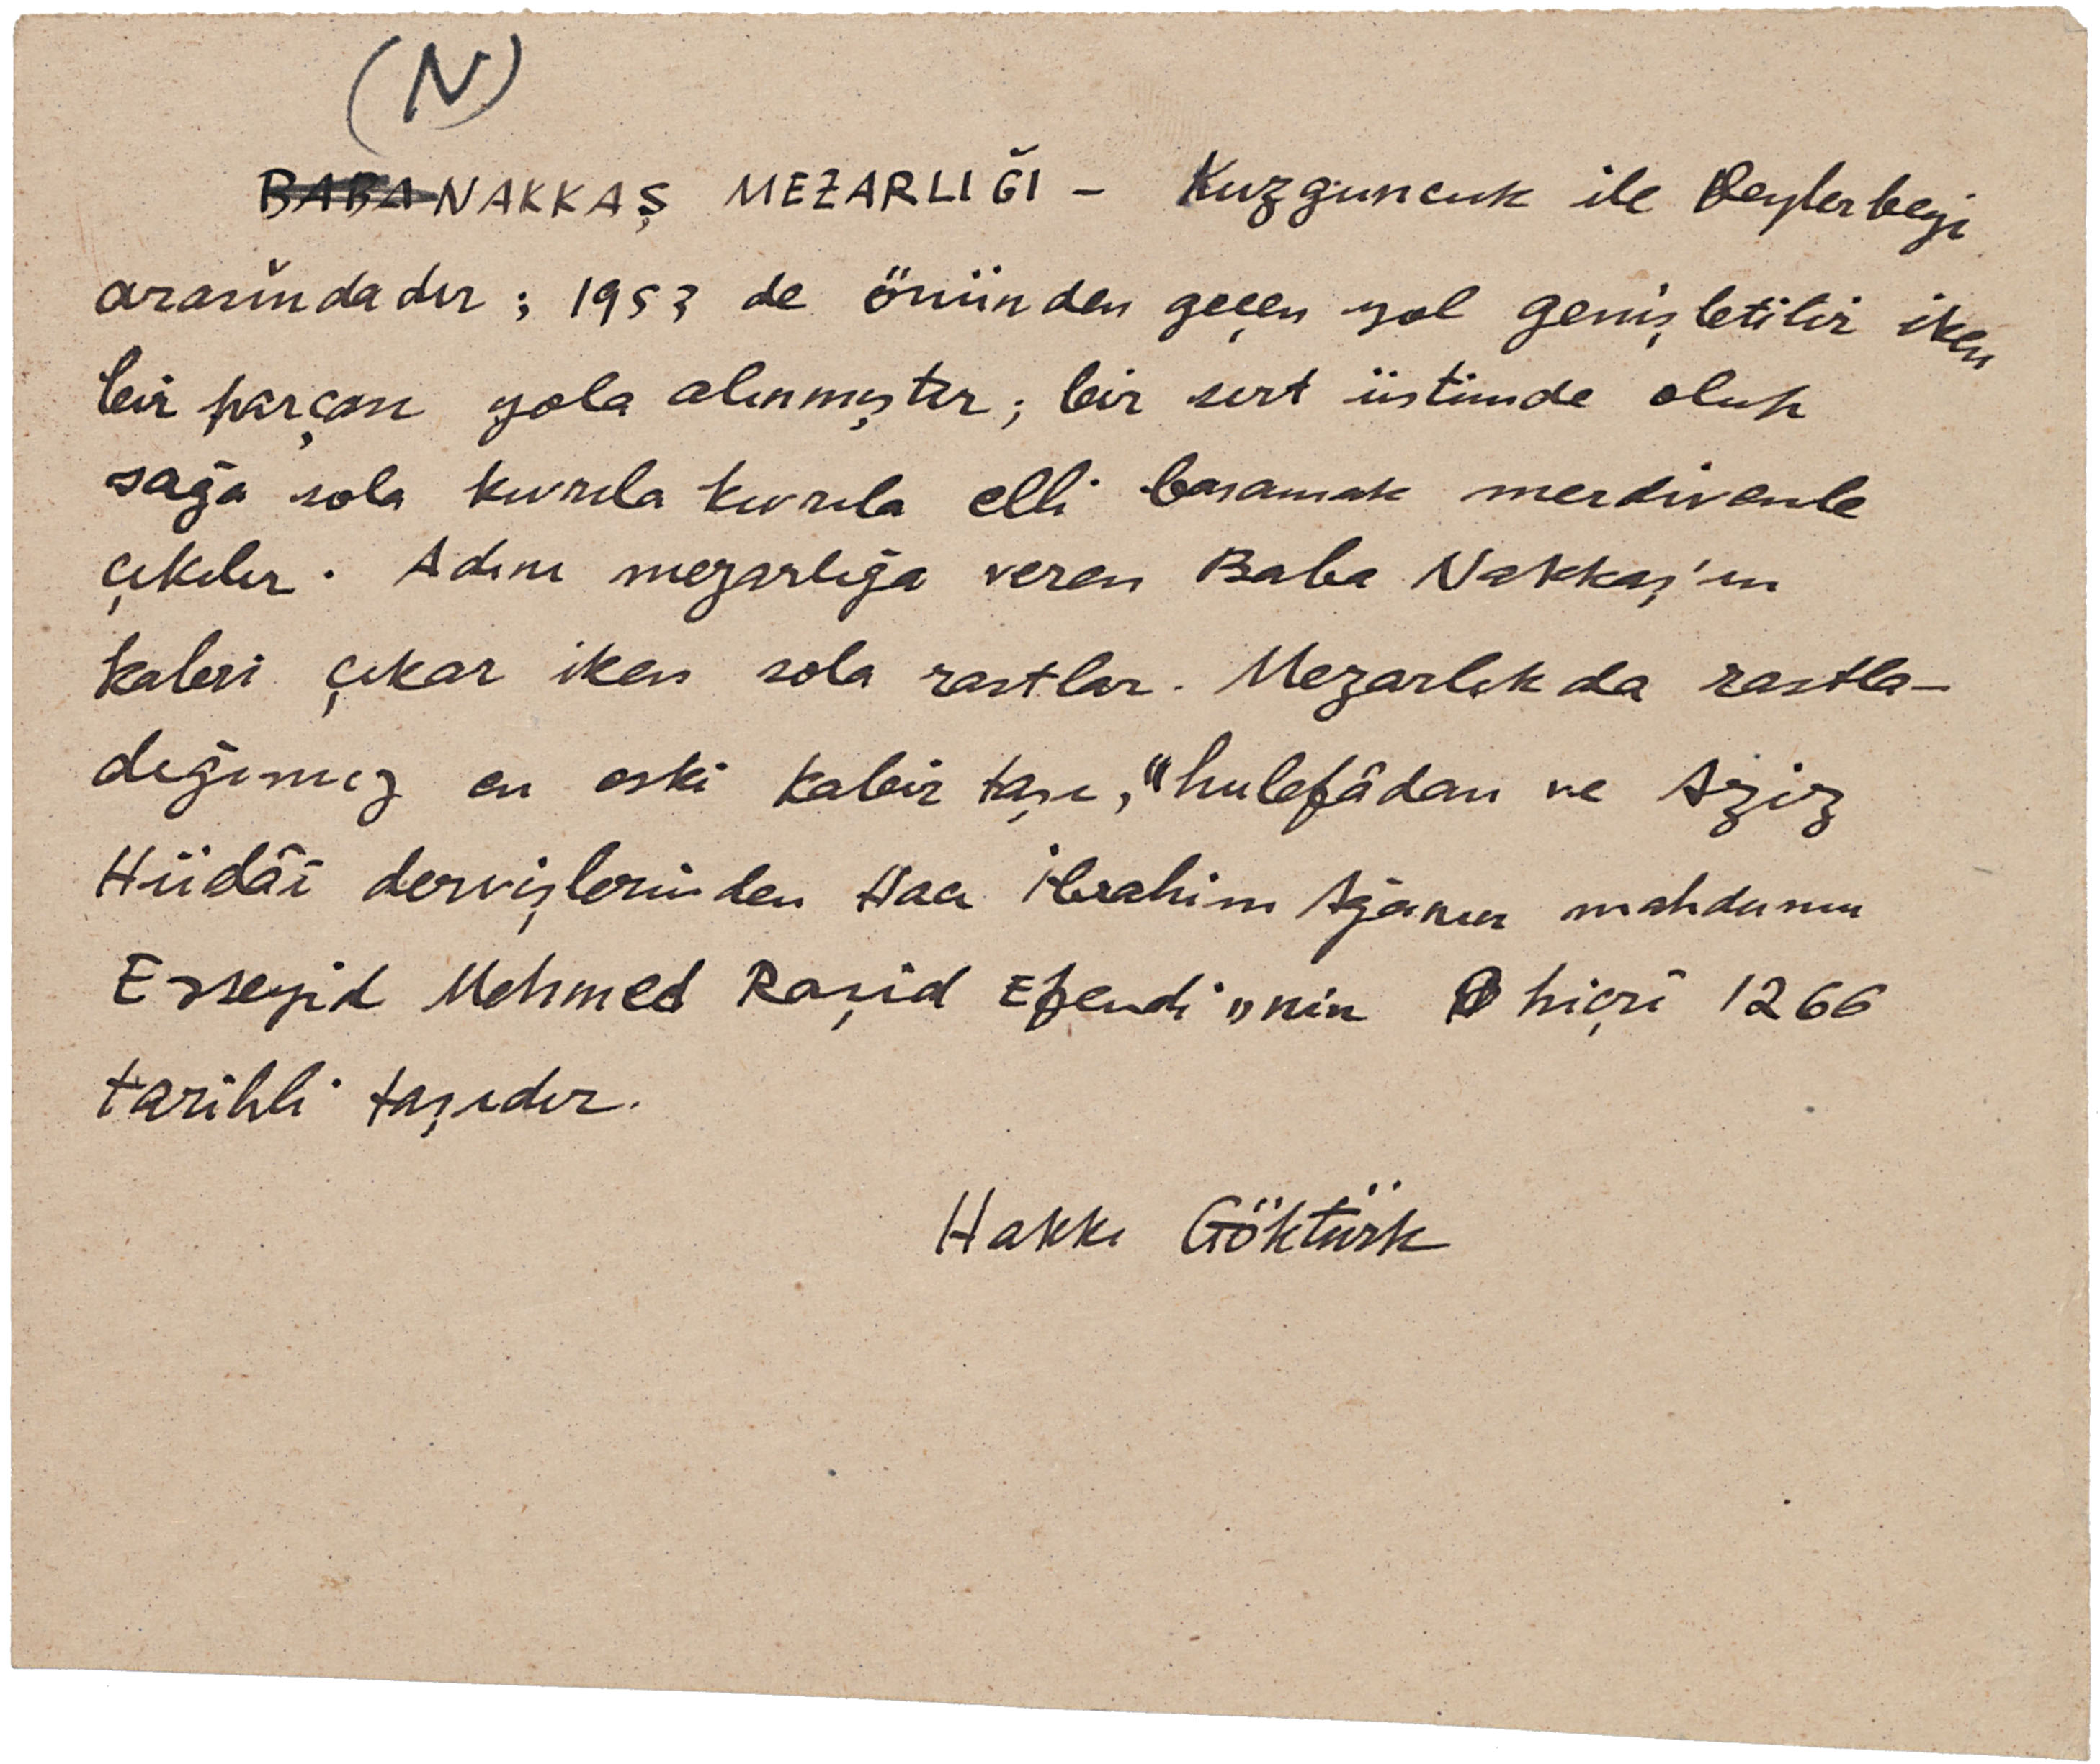 (N)
BABA NAKKAŞ MEZARLIĞI - Kuzguncuk ile Beylerbeyi
arasındadır ; 1953 de önünden geçen yol genişletilir iken
bir parçası yola alınmıştır ; bir sırt üstünde olup
sağa sola kıvrıla kıvrıla elli basamak merdivenle
çıkılır. Adını mezarlığa veren Baba Nakkaş'ın
kabri çıkar iken sola rastlar. Mezarlıkda rastla-
dığımız en eski kabir taşı, "hulefâdan ve Aziz
Hüdâî dervişlerinden Hacı İbrahim Ağanın mahdumu
Esseyid Mehmed Raşid Efendi" nin hicrî 1266
tarihli taşıdır.
Hakkı Göktürk